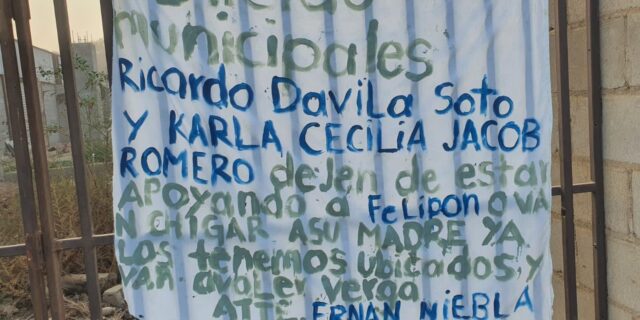 municipales
Ricardo Davila Soto
Y KARLA CECILIA JACOB
ROMERO dejen de estar
APOYANDO a FeLipon O VA
N CHIGAR ASU MADRE YA
Los tenemos Ubicados, y
VAN avaLer verga
ATTE. ERNAN NIEBLA